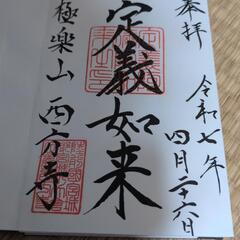 奉拝
令和七年
四月二十六日
定義如来
極楽山 西方寺